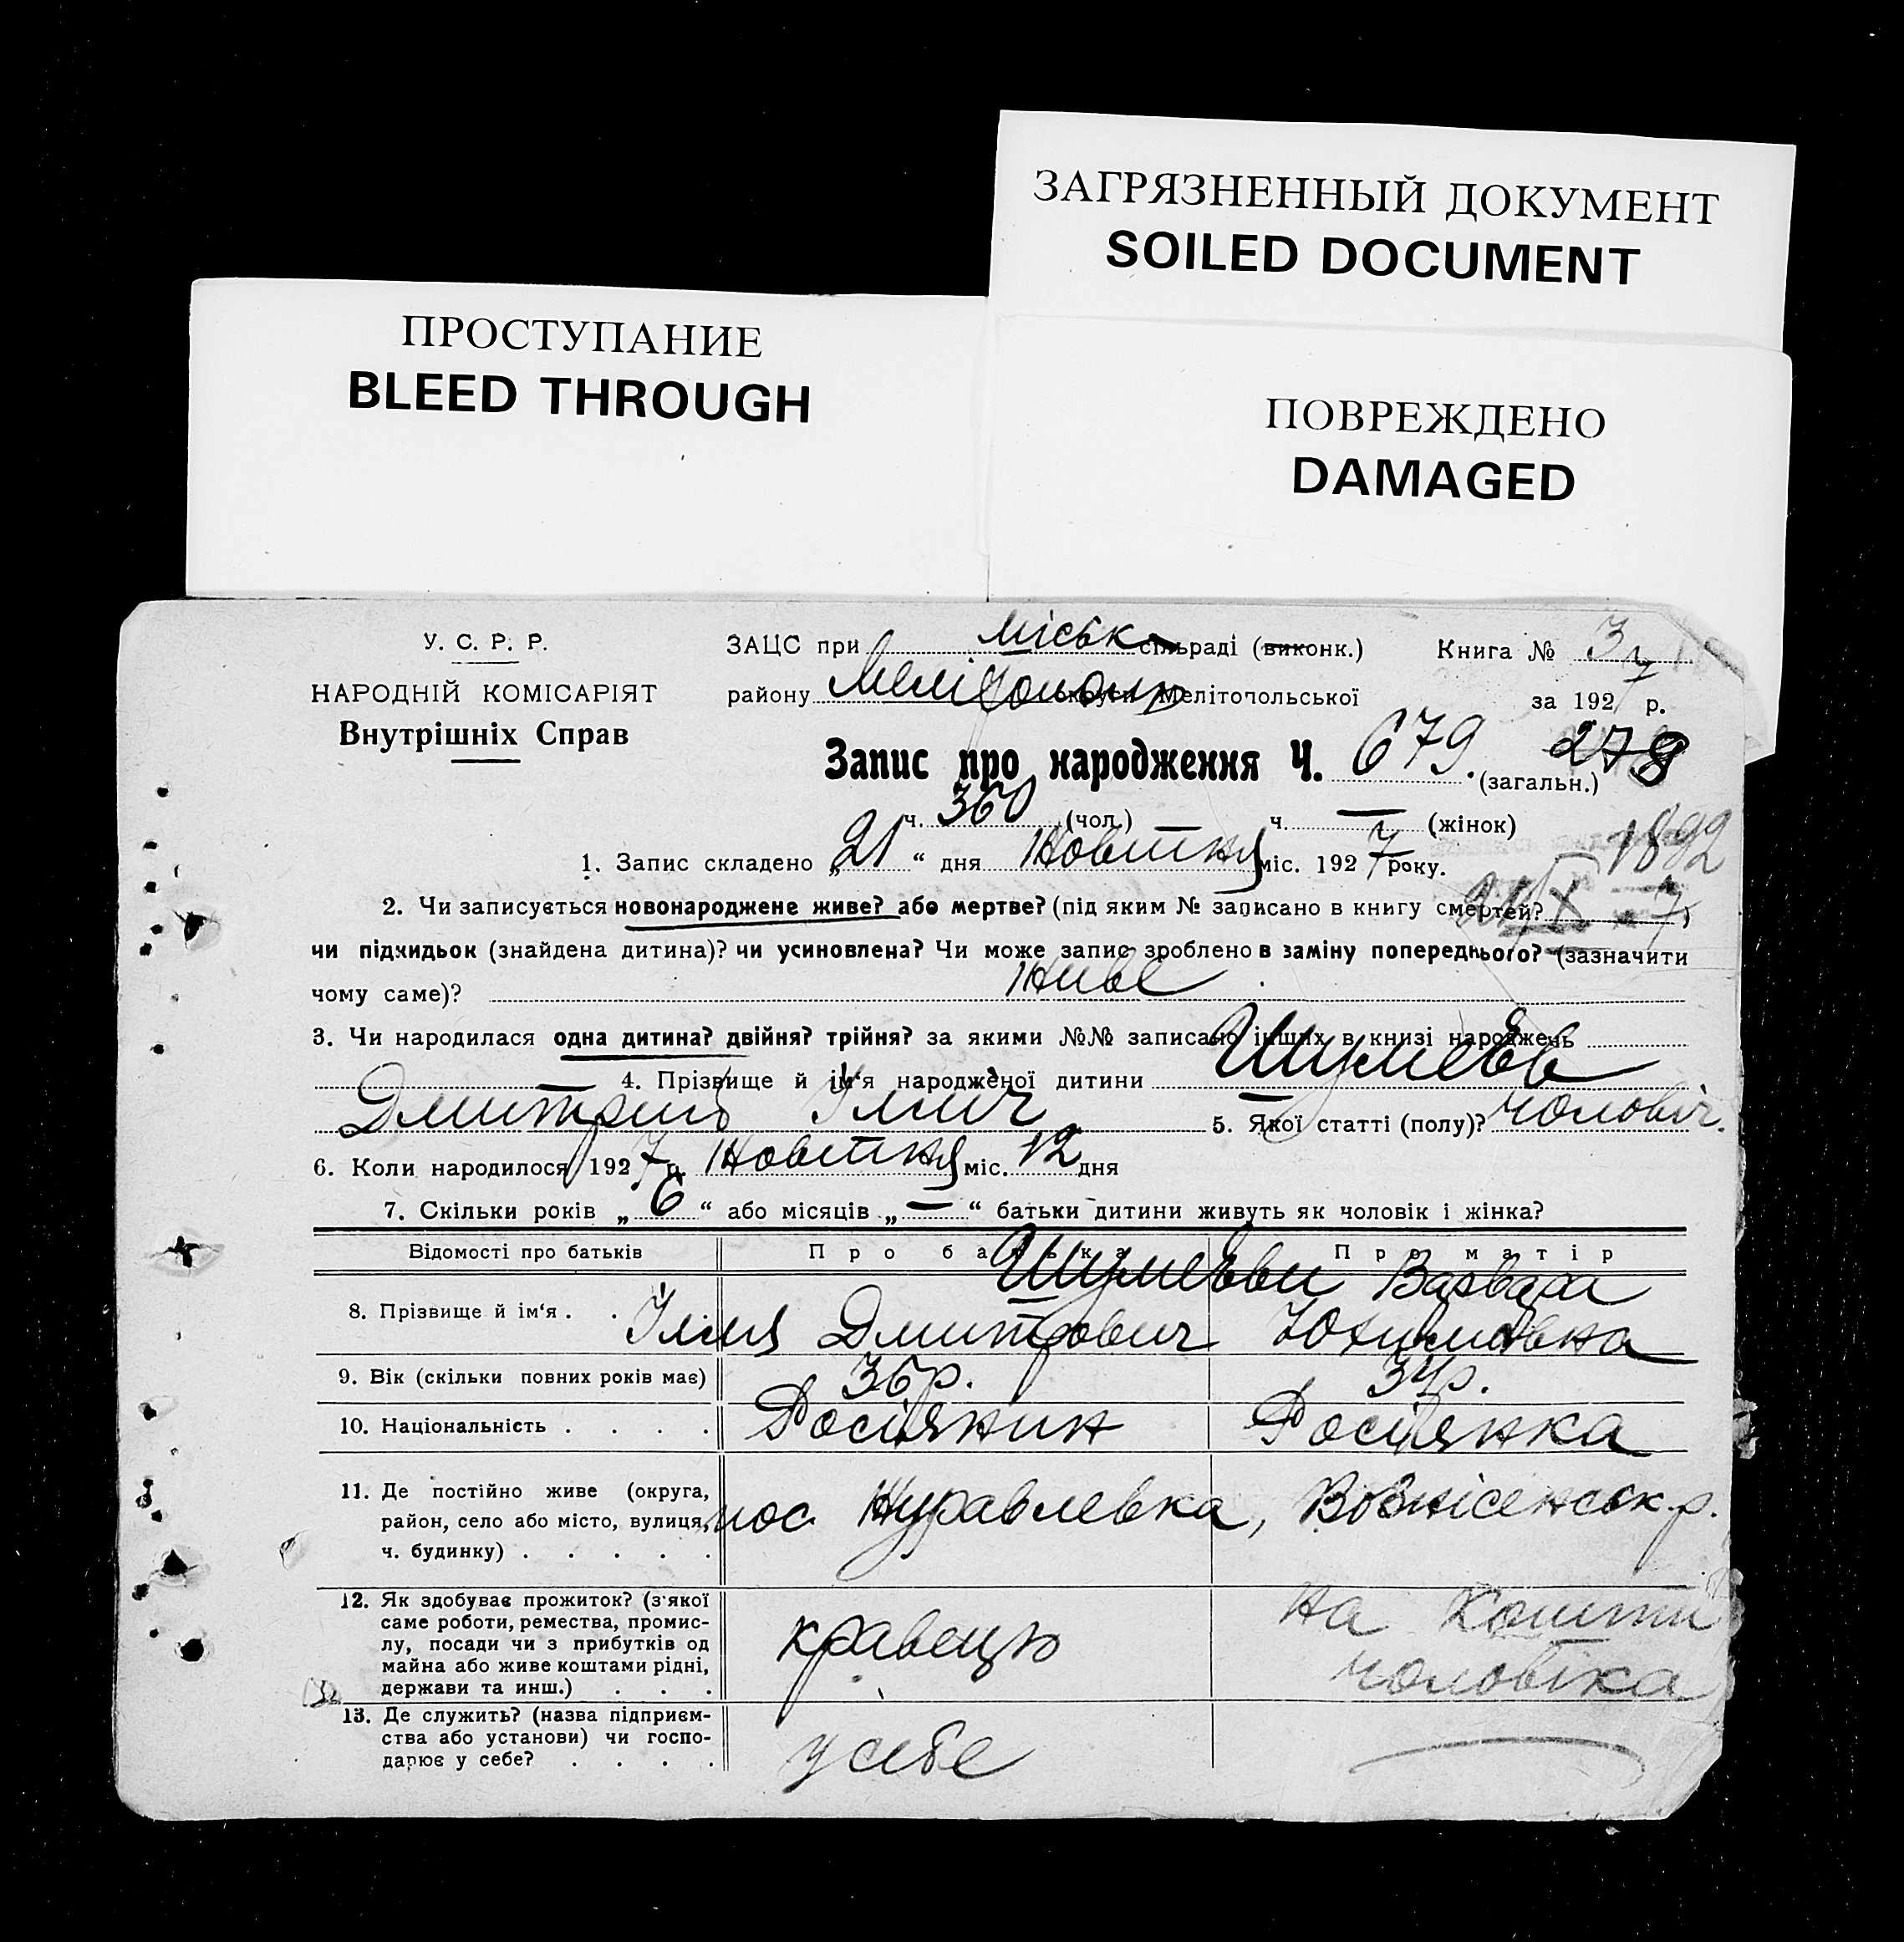 ЗАГРЯЗНЕННЫЙ ДОКУМЕНТ
SOILED DOCUMENT
ПРОСТУПАНИЕ
BLEED THROUGH
ПОВРЕЖДЕНО
DAMAGED
У. С. Р. Р.
НАРОДНІЙ КОМІСАРІЯТ
Внутрішніх Справ
ЗАЦС при міськ сільраді (виконк.) Книга № 3
району Мелітополь округи Мелітопольської за 1927 р.
Запис про народження Ч. 679. (загальн.) 278
ч. 360 (чол.) ч. — (жінок)
1892
1. Запис складено „21“ дня Жовтня міс. 1927 року.
2. Чи записується новонароджене живе? або мертве? (під яким № записано в книгу смертей? )
чи підкидьок (знайдена дитина)? чи усиновлена? Чи може запис зроблено в заміну попереднього? (зазначити
чому саме)? Живе
3. Чи народилася одна дитина? двійня? трійня? за якими №№ записано інших в книзі народжень
— 4. Прізвище й ім‘я народженої дитини Шумеєв
Дмитрий Ілліч 5. Якої статті (полу)? чоловіч.
6. Коли народилося 1927 р. Жовтня міс. 12 дня
7. Скільки років „6“ або місяців „—“ батьки дитини живуть як чоловік і жінка?
Відомості про батьків Про батька Про матір
8. Прізвище й ім‘я . . Шумеєви Варвара
Ілля Дмитрович Юхимовна
9. Вік (скільки повних років має) 36р. 34р.
10. Національність . . . . Росіянин Росіянка
11. Де постійно живе (округа,
район, село або місто, вулиця, пос Журавлевка, Вознісенськ р.
ч. будинку) . . . . .
12. Як здобуває прожиток? (з'якої
саме роботи, ремества, промис-
лу, посади чи з прибутків од
майна або живе коштами рідні,
держави та инш.) . . .
кравець
на кошти
чоловіка
13. Де служить? (назва підприєм-
ства або установи) чи госпо-
дарює у себе? . . . .
у себе